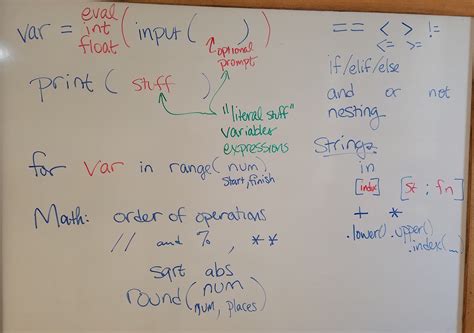 var = eval int float ( input (        ) )
optional prompt
print ( stuff )
"literal stuff"
variables
expressions
for var in range( num )
start, finish
Math: order of operations
// and %, **
sqrt abs
round( num
num, places)
== < > !=
<= >=
if/elif/else
and or not
nesting
Strings
in
[index] [st : fn]
+ *
.lower() .upper()
.index(__)